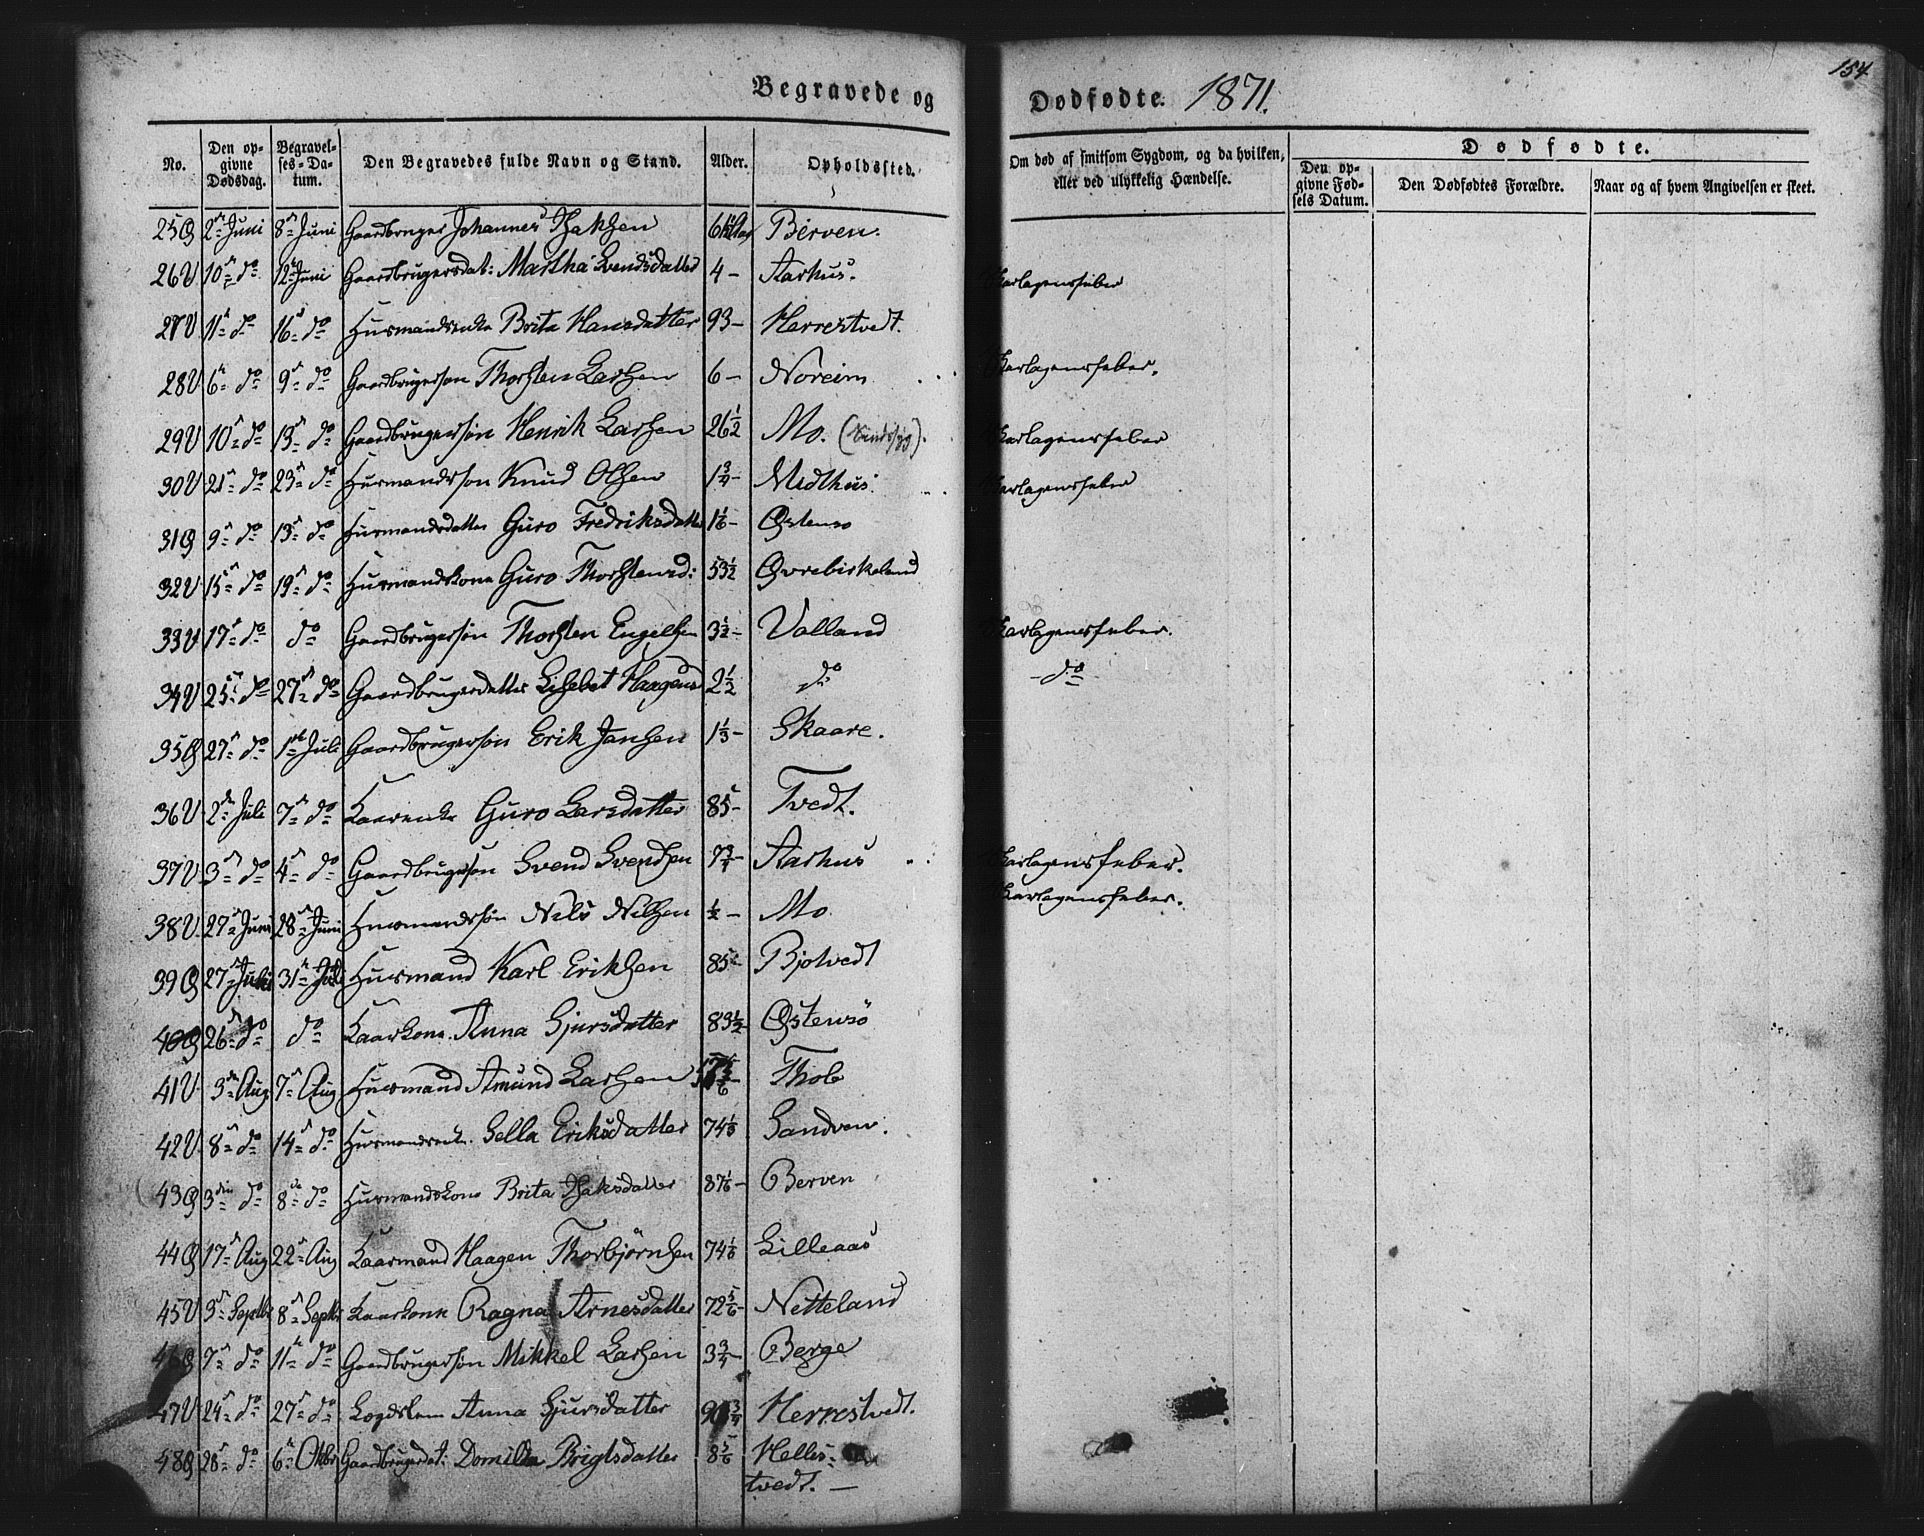 154
Begravede og Dødfødte. 1871.
No. Den opgivne Dødsdag. Begravelses-Datum. Den Begravedes fulde Navn og Stand. Alder. Opholdssted. Om død af smitsom Sygdom, og da hvilken, eller ved ulykkelig Hændelse. Dødfødte. Den opgivne Fødsels Datum. Den Dødfødtes Forældre. Naar og af hvem Angivelsen er skeet.
25 Ø 2 Juni 8 Juni Gaardbruger Johannes Berven.
26 V 10 do 12 Juni Gaardbrugersdat: Martha Svendsdatter 4 - Aarhus. Skarlagensfeber
27 V 11 do 16 do Brita Hansdatter 93 - Herrestvedt.
28 V 6 do 9 do Gaardbrugersøn Thorsten Larsen 6 - Noreim Skarlagensfeber.
29 V 10 do 13 do Gaardbrugersøn Henrik Larsen 26 1/2 Mo. Skarlagensfeber
30 V 21 do 23 do Husmandssøn Knud Olsen 1 3/4 - Midthus Skarlagensfeber
31 Ø 9 do 13 do Husmandsdatter Guro Fredriksdatter 1 1/6 - Østensø
32 V 15 do 19 do Husmandskone Guro Thorstensd: 53 1/2 Øvrebirkeland
33 V 17 do do Gaardbrugersøn Thorsten Engelsen 3 1/2 - Valland Skarlagensfeber.
34 V 25 do 27 do Gaardbrugerdatter Lisebet Haagensd 2 1/2 do - do -
35 Ø 27 do 1 Juli Gaardbrugersøn Erik Jansen 1 1/3 - Skaare.
36 V 2 Juli 7 do Guro Larsdatter 85 - Tvedt.
37 V 3 do 4 do Gaardbrugersøn Svend Svendsen 7 3/4 - Aarhus Skarlagensfeber.
38 V 27 Juni 28 Juni Husmandssøn Nils Nilsen 1/2 - Mo Skarlagensfeber.
39 Ø 27 Juli 31 Juli Husmand Karl Eriksen 85 - Bjotvedt
40 Ø 26 do do Kaarkone Anna Sjursdatter 83 1/2 - Østensø
41 V 3 Aug 7 Aug Husmand Amund Larsen
42 V 8 do 14 do Sella Eriksdatter 74 1/3 Sandven.
43 Ø 3 do 8 do Husmandskone Brita 87 1/6 - Berven
44 Ø 17 Aug 22 Aug Kaarmand Haagen Thorbjørnsen 74 1/6 Lilleaas
45 V 3 Septbr 8 Septbr Kaarkone Ragna Arnesdatter 72 5/6 - Netteland
46 Ø 7 do 11 do Gaardbrugersøn Mikkel Larsen 3 3/4 - Berge
47 V 24 do 27 do Anna Sjursdatter Herrestvedt.
48 Ø 28 do 6 Oktbr Gaardbrugerdat: Brigtsdatter 8 5/6 Hellestvedt. -